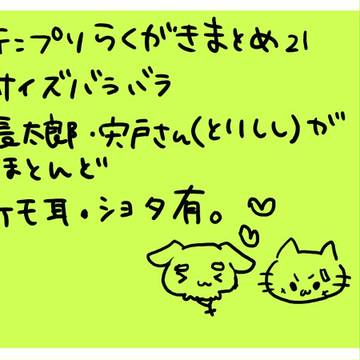 テニプリらくがきまとめ21
サイズバラバラ
長太郎・宍戸さん(とりしし)が
ほとんど
ケモ耳・ショタ有。